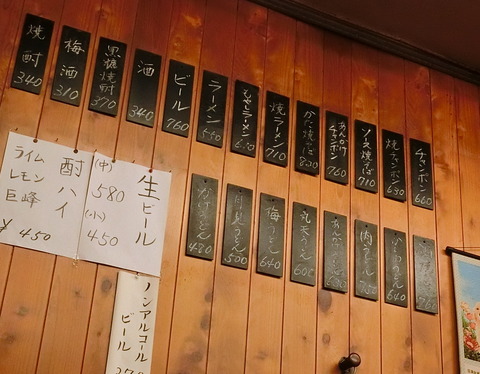 焼酎 340
梅酒 310
黒糖焼酎 370
酒 340
ビール 760
ラーメン
もやしラーメン
焼ラーメン 710
かた焼そば
あんかけチャンポン 760
ソース焼そば 710
焼チャンポン
チャンポン 660
うどん 430
月見うどん 500
梅うどん 640
丸天うどん
肉うどん
うどん 640
酎ハイ
ライム
レモン
巨峰
¥450
生ビール
(中) 580
(小) 450
ノンアルコールビール